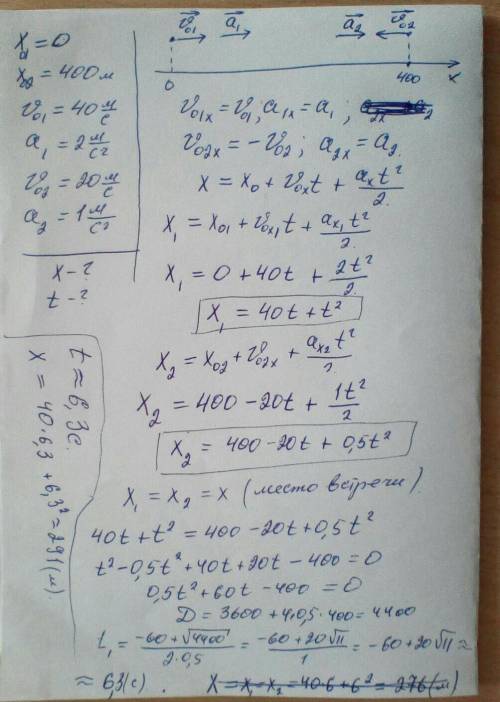 x₀₁ = 0
x₀₂ = 400 м
v₀₁ = 40 м/с
a₁ = 2 м/с²
v₀₂ = 20 м/с
a₂ = 1 м/с²
x - ?
t - ?
v⃗₀₁ a⃗₁ a⃗₂ v⃗₀₂
0 400 x
v₀₁ₓ = v₀₁; a₁ₓ = a₁;
v₀₂ₓ = -v₀₂; a₂ₓ = a₂.
x = x₀ + v₀ₓt + aₓt²/2.
x₁ = x₀₁ + v₀ₓ₁t + aₓ₁t²/2.
x₁ = 0 + 40t + 2t²/2.
x₁ = 40t + t²
x₂ = x₀₂ + v₀₂ₓ + aₓ₂t²/2.
x₂ = 400 - 20t + 1t²/2
x₂ = 400 - 20t + 0,5t²
x₁ = x₂ = x (место встречи).
40t + t² = 400 - 20t + 0,5t²
t² - 0,5t² + 40t + 20t - 400 = 0
0,5t² + 60t - 400 = 0
D = 3600 + 4·0,5·400 = 4400
t₁ = (-60 + √4400)/(2·0,5) = (-60 + 20√11)/1 = -60 + 20√11 ≈
≈ 6,3 (с). x = x₁ = x₂ = 40·6 + 6² = 276 (м)
t ≈ 6,3 с.
x = 40·6,3 + 6,3² = 291 (м).